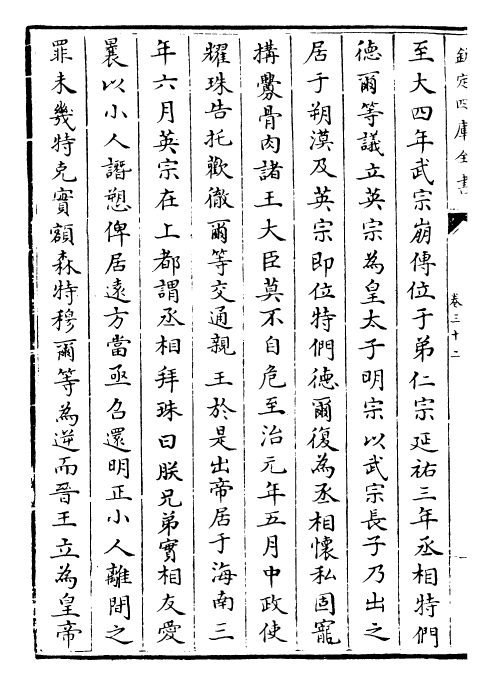 欽定四庫全書
卷三十二
至大四年武宗崩傳位于弟仁宗延祐三年丞相特們
德爾等議立英宗為皇太子明宗以武宗長子乃出之
居于朔漠及英宗即位特們德爾復為丞相懷私固寵
搆釁骨肉諸王大臣莫不自危至治元年五月中政使
耀珠告托歡徹爾等交通親王於是出帝居于海南三
年六月英宗在上都謂丞相拜珠曰朕兄弟實相友愛
曩以小人譖愬俾居遠方當亟召還明正小人離間之
罪未幾特克實額森特穆爾等為逆而晉王立為皇帝